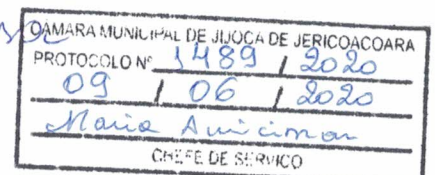 CÂMARA MUNICIPAL DE JIJOCA DE JERICOACOARA
PROTOCOLO Nº 1489 / 2020
09 / 06 / 2020
Maria
CHEFE DE SERVIÇO